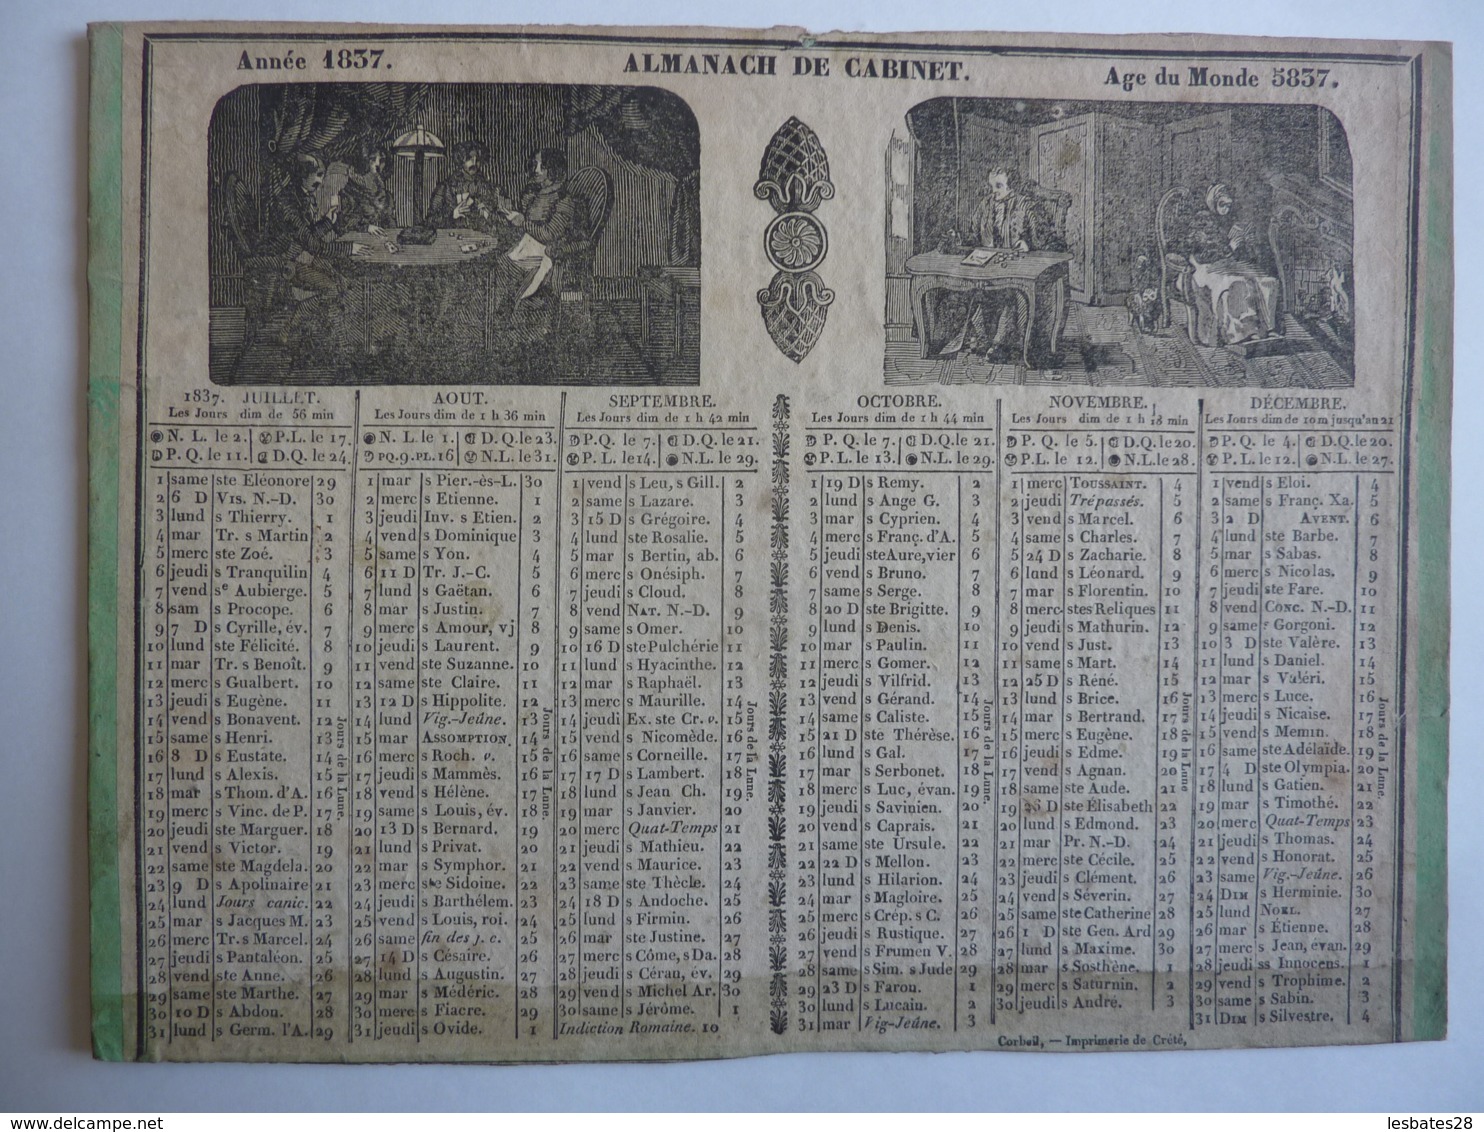 Année 1837.
ALMANACH DE CABINET.
Age du Monde 5837.
1837. JUILLET.
Les Jours dim de 56 min
N. L. le 2. P.L. le 17.
P. Q. le 11. D.Q. le 24.
1 same ste Eléonore 29
2 6 D Vis. N.-D. 30
3 lund s Thierry. 1
4 mar Tr. s Martin 2
5 merc ste Zoé. 3
6 jeudi s Tranquilin 4
7 vend se Aubierge. 5
8 sam s Procope. 6
9 7 D s Cyrille, év. 7
10 lund ste Félicité. 8
11 mar Tr. s Benoît. 9
12 merc s Gualbert. 10
13 jeudi s Eugène. 11
14 vend s Bonavent. 12
15 same s Henri. 13
16 8 D s Eustate. 14
17 lund s Alexis. 15
18 mar s Thom. d'A. 16
19 merc s Vinc. de P. 17
20 jeudi ste Marguer. 18
21 vend s Victor. 19
22 same ste Magdela. 20
23 9 D s Apolinaire 21
24 lund Jours canic. 22
25 mar s Jacques M. 23
26 merc Tr. s Marcel. 24
27 jeudi s Pantaléon. 25
28 vend ste Anne. 26
29 same ste Marthe. 27
30 10 D s Abdon. 28
31 lund s Germ. l'A. 29
Jours de la Lune.
AOUT.
Les Jours dim de 1 h 36 min
N. L. le 1. D. Q. le 23.
PQ. 9. PL. 16 N.L. le 31.
1 mar s Pier.-ès-L. 30
2 merc s Etienne. 1
3 jeudi Inv. s Etien. 2
4 vend s Dominique 3
5 same s Yon. 4
6 11 D Tr. J.-C. 5
7 lund s Gaëtan. 6
8 mar s Justin. 7
9 merc s Amour, vj 8
10 jeudi s Laurent. 9
11 vend ste Suzanne. 10
12 same ste Claire. 11
13 12 D s Hippolite. 12
14 lund Vig.-Jeûne. 13
15 mar ASSOMPTION. 14
16 merc s Roch. v. 15
17 jeudi s Mammès. 16
18 vend s Hélène. 17
19 same s Louis, év. 18
20 13 D s Bernard. 19
21 lund s Privat. 20
22 mar s Symphor. 21
23 merc ste Sidoine. 22
24 jeudi s Barthélem. 23
25 vend s Louis, roi. 24
26 same fin des j. c. 25
27 14 D s Césaire. 26
28 lund s Augustin. 27
29 mar s Médéric. 28
30 merc s Fiacre. 29
31 jeudi s Ovide. 1
Jours de la Lune.
SEPTEMBRE.
Les Jours dim de 1 h 42 min
P. Q. le 7. D.Q. le 21.
P. L. le 14. N.L. le 29.
1 vend s Leu, s Gill. 2
2 same s Lazare. 3
3 15 D s Grégoire. 4
4 lund ste Rosalie. 5
5 mar s Bertin, ab. 6
6 merc s Onésiph. 7
7 jeudi s Cloud. 8
8 vend NAT. N.-D. 9
9 same s Omer. 10
10 16 D ste Pulchérie 11
11 lund s Hyacinthe. 12
12 mar s Raphaël. 13
13 merc s Maurille. 14
14 jeudi Ex. ste Cr. v. 15
15 vend s Nicomède. 16
16 same s Corneille. 17
17 17 D s Lambert. 18
18 lund s Jean Ch. 19
19 mar s Janvier. 20
20 merc Quat-Temps 21
21 jeudi s Mathieu. 22
22 vend s Maurice. 23
23 same ste Thècle. 24
24 18 D s Andoche. 25
25 lund s Firmin. 26
26 mar ste Justine. 27
27 merc s Côme, s Da. 28
28 jeudi s Cérau, év. 29
29 vend s Michel Ar. 30
30 same s Jérôme. 1
Indiction Romaine. 10
Jours de la Lune.
OCTOBRE.
Les Jours dim de 1 h 44 min
P. Q. le 7. D.Q. le 21.
P. L. le 13. N.L. le 29.
1 19 D s Remy. 2
2 lund s Ange G. 3
3 mar s Cyprien. 4
4 merc s Franç. d'A. 5
5 jeudi ste Aure, vier 6
6 vend s Bruno. 7
7 same s Serge. 8
8 20 D ste Brigitte. 9
9 lund s Denis. 10
10 mar s Paulin. 11
11 merc s Gomer. 12
12 jeudi s Vilfrid. 13
13 vend s Gérand. 14
14 same s Caliste. 15
15 21 D ste Thérèse. 16
16 lund s Gal. 17
17 mar s Serbonet. 18
18 merc s Luc, évan. 19
19 jeudi s Savinien. 20
20 vend s Caprais. 21
21 same ste Ursule. 22
22 22 D s Mellon. 23
23 lund s Hilarion. 24
24 mar s Magloire. 25
25 merc s Crép. s C. 26
26 jeudi s Rustique. 27
27 vend s Frumen V. 28
28 same s Sim. s Jude 29
29 23 D s Farou. 1
30 lund s Lucain. 2
31 mar Vig-Jeûne. 3
Jours de la Lune.
NOVEMBRE.
Les Jours dim de 1 h 18 min
P. Q. le 5. D.Q. le 20.
P. L. le 12. N.L. le 28.
1 merc TOUSSAINT. 4
2 jeudi Trépassés. 5
3 vend s Marcel. 6
4 same s Charles. 7
5 24 D s Zacharie. 8
6 lund s Léonard. 9
7 mar s Florentin. 10
8 merc stes Reliques 11
9 jeudi s Mathurin. 12
10 vend s Just. 13
11 same s Mart. 14
12 25 D s Réné. 15
13 lund s Brice. 16
14 mar s Bertrand. 17
15 merc s Eugène. 18
16 jeudi s Edme. 19
17 vend s Agnan. 20
18 same ste Aude. 21
19 26 D ste Élisabeth 22
20 lund s Edmond. 23
21 mar Pr. N.-D. 24
22 merc ste Cécile. 25
23 jeudi s Clément. 26
24 vend s Séverin. 27
25 same ste Catherine 28
26 1 D ste Gen. Ard 29
27 lund s Maxime. 30
28 mar s Sosthène. 1
29 merc s Saturnin. 2
30 jeudi s André. 3
Jours de la Lune
DÉCEMBRE.
Les Jours dim de 10 m jusqu'au 21
P. Q. le 4. D.Q. le 20.
P. L. le 12. N.L. le 27.
1 vend s Eloi. 4
2 same s Franç. Xa. 5
3 2 D AVENT. 6
4 lund ste Barbe. 7
5 mar s Sabas. 8
6 merc s Nicolas. 9
7 jeudi ste Fare. 10
8 vend CONC. N.-D. 11
9 same s Gorgoni. 12
10 3 D ste Valère. 13
11 lund s Daniel. 14
12 mar s Valéri. 15
13 merc s Luce. 16
14 jeudi s Nicaise. 17
15 vend s Memin. 18
16 same ste Adélaïde. 19
17 4 D ste Olympia. 20
18 lund s Gatien. 21
19 mar s Timothé. 22
20 merc Quat-Temps 23
21 jeudi s Thomas. 24
22 vend s Honorat. 25
23 same Vig-Jeûne. 26
24 DIM s Herminie. 30
25 lund NOEL. 27
26 mar s Étienne. 28
27 merc s Jean, évan. 29
28 jeudi ss Innocens. 1
29 vend s Trophime. 2
30 same s Sabin. 3
31 DIM s Silvestre. 4
Jours de la Lune.
Corbeil, — Imprimerie de Crété,
lesbates28